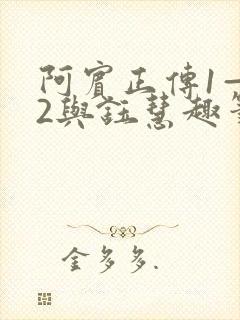 阿賓正傳1一
2與鈺慧趣
金多多.